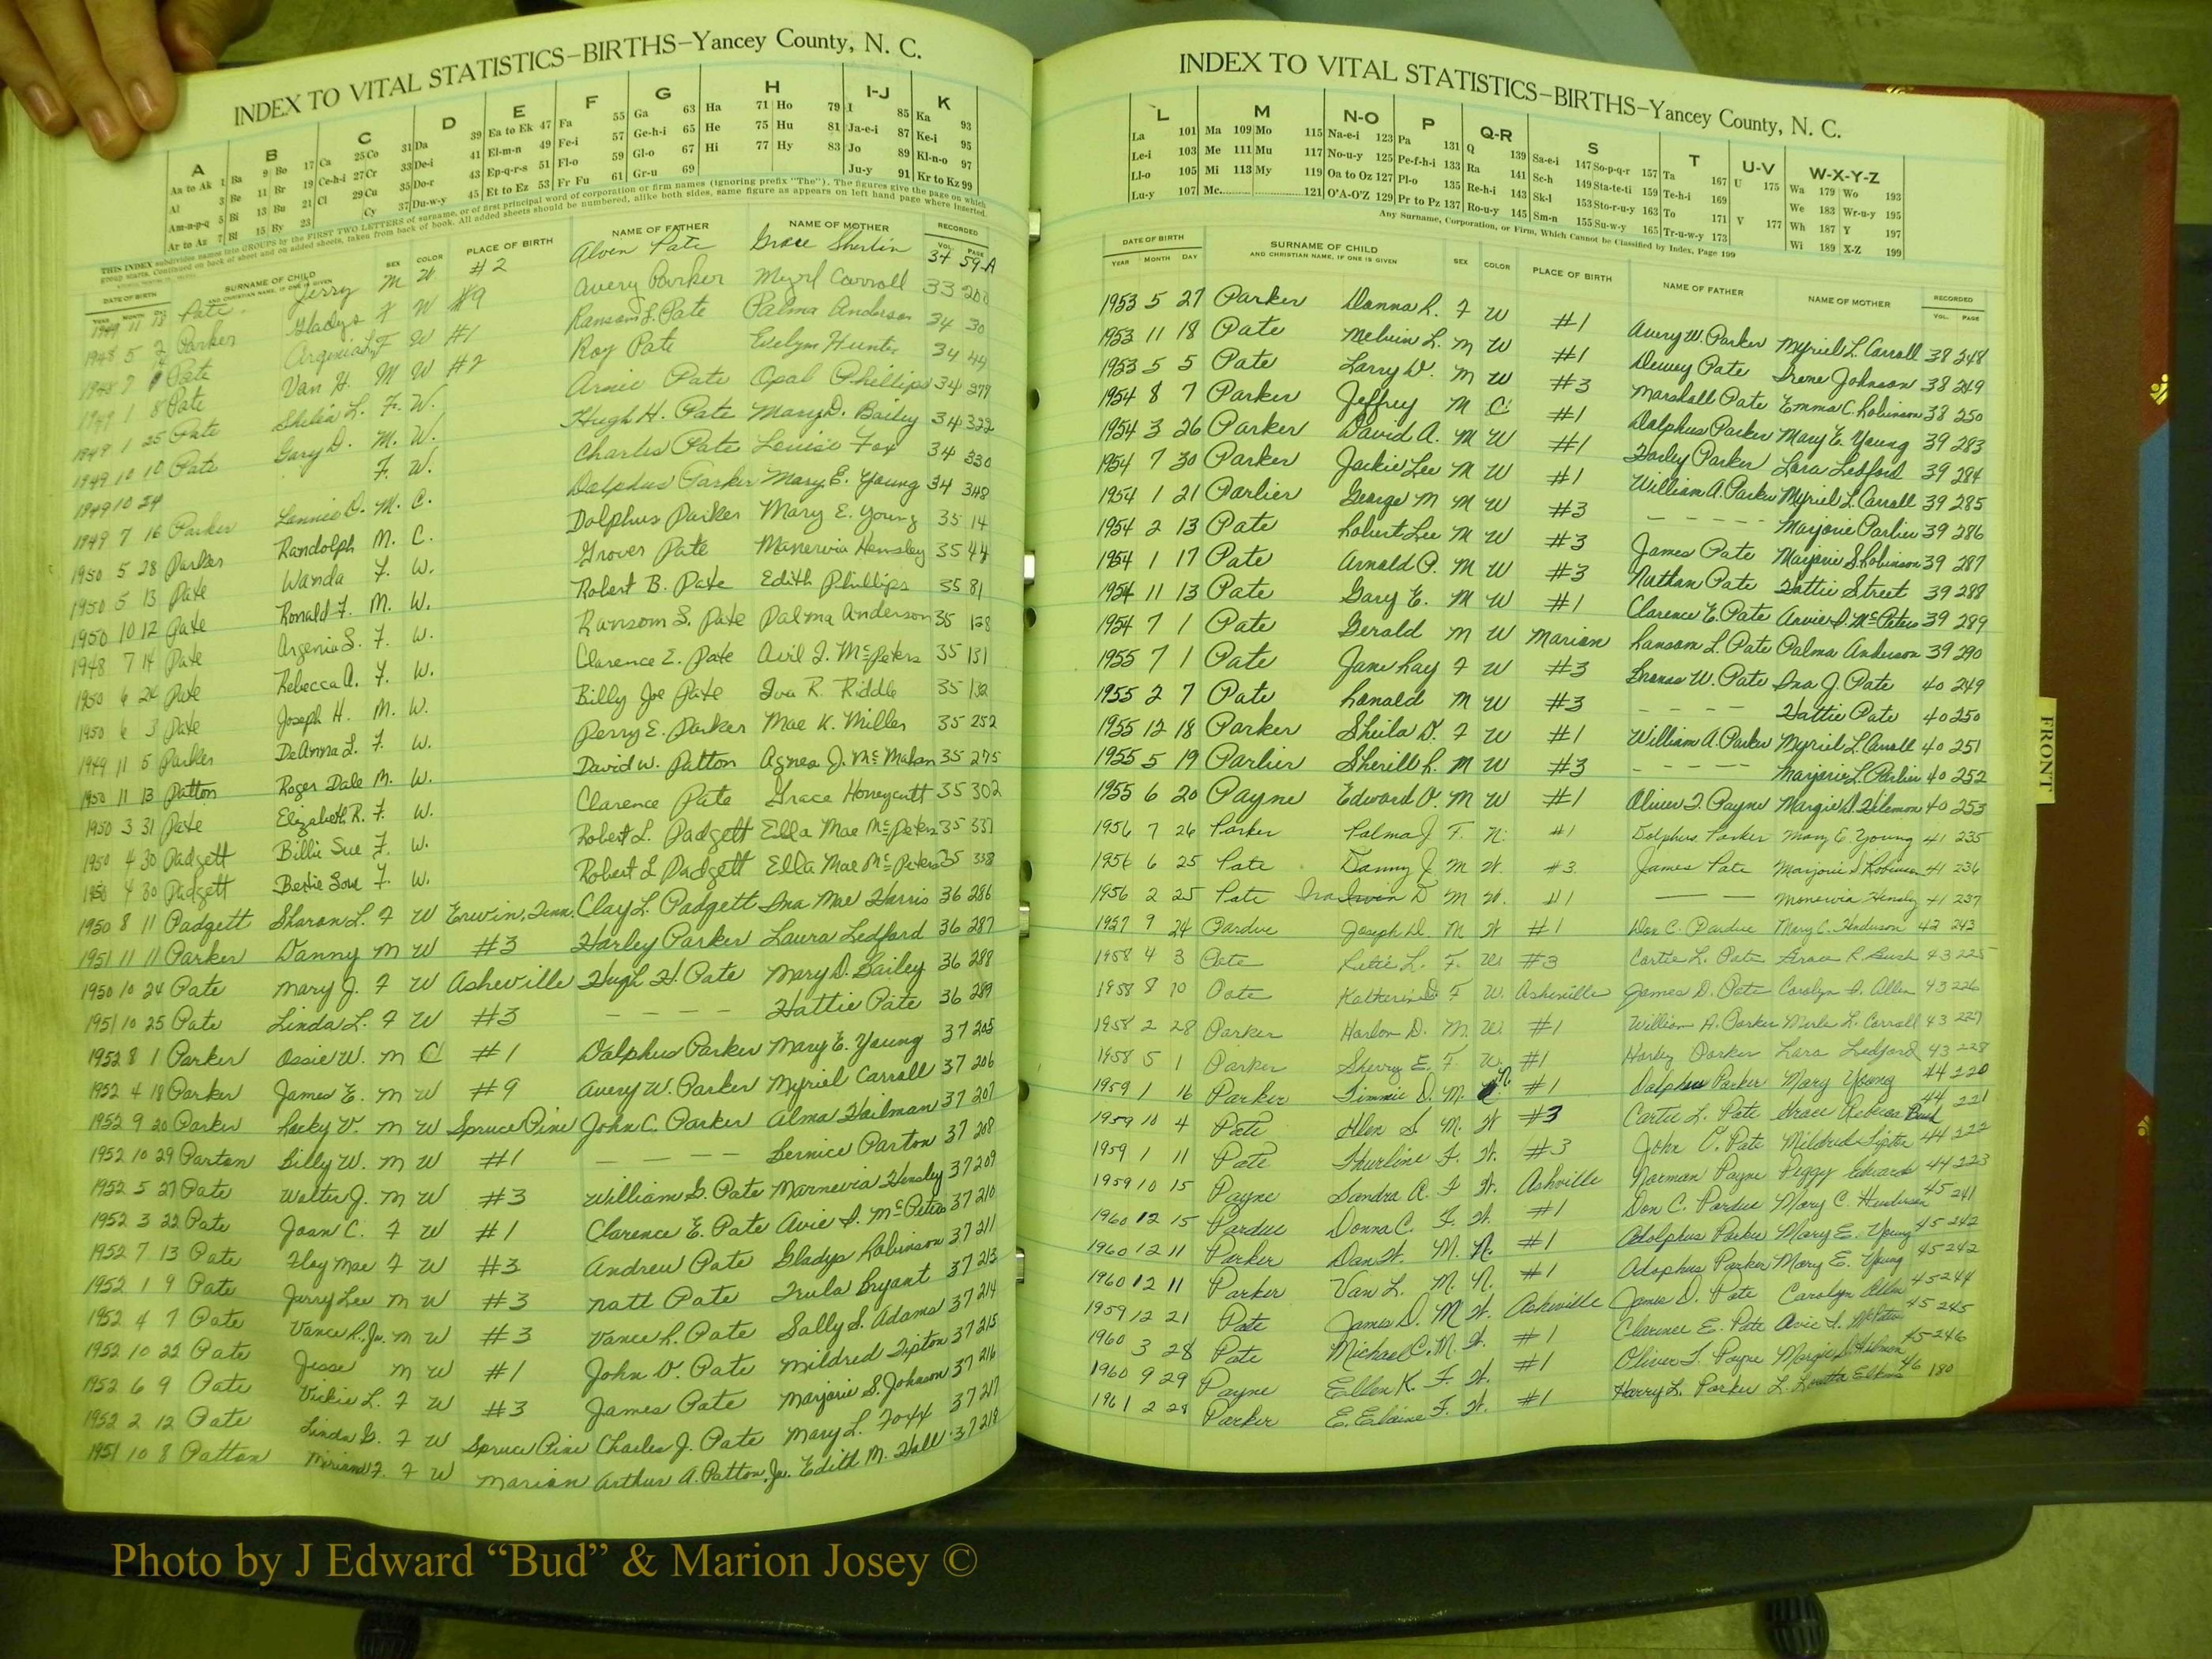 INDEX TO VITAL STATISTICS—BIRTHS—Yancey County, N. C.
A B C D E F G H I-J K
Aa to Ak 1 Ba 9 Bo 17 Ca 25 Co 31 Da 39 Ea to Ek 47 Fa 55 Ga 63 Ha 71 Ho 79 I 85 Ka 93
Al 3 Be 11 Br 19 Ce-h-i 27 Cr 33 De-i 41 El-m-n 49 Fe-i 57 Ge-h-i 65 He 75 Hu 81 Ja-e-i 87 Ke-i 95
Am-n-p-q 5 Bi 13 Bu 21 Cl 29 Cu 35 Do-r 43 Ep-q-r-s 51 Fl-o 59 Gl-o 67 Hi 77 Hy 83 Jo 89 Kl-n-o 97
Ar to Az 7 Bl 15 By 23 Cy 37 Du-w-y 45 Et to Ez 53 Fr Fu 61 Gr-u 69 Ju-y 91 Kr to Kz 99
THIS INDEX subdivides names into GROUPS by the FIRST TWO LETTERS of surname, or of first principal word of corporation or firm names (ignoring prefix "The"). The figures give the page on which
group starts. Continued on back of sheet and on added sheets, taken from back of book. All added sheets should be numbered, alike both sides, same figure as appears on left hand page where inserted.
DATE OF BIRTH SURNAME OF CHILD SEX COLOR PLACE OF BIRTH NAME OF FATHER NAME OF MOTHER RECORDED
YEAR MONTH DAY AND CHRISTIAN NAME, IF ONE IS GIVEN VOL. PAGE
1949 11 18 Pate Jerry M W #2 Alven Pate Grace Sherlin 34 59-A
1948 5 2 Parker Gladys F W #9 Avery Parker Myrl Carroll 33
1948 7 Pate Argenia L. F W #1 Ransom L. Pate Palma Anderson 34 30
1949 1 8 Pate Van H. M W #2 Roy Pate Evelyn Hunter 34 44
1949 1 25 Pate Shelia L. F. W. Arnie Pate Opal Phillips 34 279
1949 10 10 Pate Gary D. M. W. Hugh H. Pate Mary D. Bailey 34 322
1949 10 24 F. W. Charles Pate Louise Fox 34 330
1949 7 16 Parker Lonnie D. M. C. Dolphus Parker Mary E. Young 34 348
1950 5 28 Parker Randolph M. C. Dolphus Parker Mary E. Young 35 14
1950 5 13 Pate Wanda F. W. Grover Pate Manervia Hensley 35 44
1950 10 12 Pate Ronald F. M. W. Robert B. Pate Edith Phillips 35 81
1948 7 14 Pate Argenia S. F. W. Ransom S. Pate Palma Anderson 35 128
1950 6 24 Pate Rebecca A. F. W. Clarence E. Pate Avil I. McPeters 35 131
1950 6 3 Pate Joseph H. M. W. Billy Joe Pate Iva R. Riddle 35 132
1949 11 5 Parker DeAnna L. F. W. Perry E. Parker Mae K. Miller 35 252
1950 11 13 Patton Roger Dale M. W. David W. Patton Agnes J. McMahan 35 275
1950 3 31 Pate Elizabeth R. F. W. Clarence Pate Grace Honeycutt 35 302
1950 4 30 Padgett Billie Sue F. W. Robert L. Padgett Ella Mae McPeters 35 337
1950 4 30 Padgett Bettie Lou F. W. Robert L Padgett Ella Mae McPeters 35 338
1950 8 11 Padgett Sharon L. F W Erwin, Tenn. Clay L. Padgett Ina Mae Harris 36 286
1951 11 11 Parker Danny M W #3 Harley Parker Laura Ledford 36 287
1950 10 24 Pate Mary J. F W Asheville Hugh H. Pate Mary D. Bailey 36 288
1951 10 25 Pate Linda L. F W #3 - - - - Hattie Pate 36 289
1952 8 1 Parker Ossie W. M C #1 Dalphus Parker Mary E. Young 37 205
1952 4 18 Parker James E. M W #9 Avery W. Parker Myriel Carroll 37 206
1952 9 20 Parker Rocky V. M W Spruce Pine John C. Parker Alma Hailman 37 207
1952 10 29 Parton Billy W. M W #1 - - - - Bernice Parton 37 208
1952 5 27 Pate Walter J. M W #3 William G. Pate Marnevia Hensley 37 209
1952 3 22 Pate Joan C. F W #1 Clarence E. Pate Avie I. McPeters 37 210
1952 7 13 Pate Floy Mae F W #3 Andrew Pate Gladys Robinson 37 211
1952 1 9 Pate Jerry Lee M W #3 Natt Pate Trula Bryant 37 213
1952 4 7 Pate Vance R. Jr. M W #3 Vance R. Pate Sally S. Adams 37 214
1952 10 22 Pate Jesse M W #1 John V. Pate Mildred Tipton 37 215
1952 6 9 Pate Vickie L. F W #3 James Pate Marjorie S. Johnson 37 216
1952 2 12 Pate Linda G. F W Spruce Pine Charles J. Pate Mary L. Foxx 37 217
1951 10 8 Patton Miriam F. F W Marion Arthur A. Patton, Jr. Edith M. Hall 37 218
INDEX TO VITAL STATISTICS—BIRTHS—Yancey County, N. C.
L M N-O P Q-R S T U-V W-X-Y-Z
La 101 Ma 109 Mo 115 Na-e-i 123 Pa 131 Q 139 Sa-e-i 147 So-p-q-r 157 Ta 167 U 175 Wa 179 Wo 193
Le-i 103 Me 111 Mu 117 No-u-y 125 Pe-f-h-i 133 Ra 141 Sc-h 149 Sta-te-ti 159 Te-h-i 169 We 183 Wr-u-y 195
Ll-o 105 Mi 113 My 119 Oa to Oz 127 Pl-o 135 Re-h-i 143 Sk-l 153 Sto-r-u-y 163 To 171 V 177 Wh 187 Y 197
Lu-y 107 Mc 121 O'A-O'Z 129 Pr to Pz 137 Ro-u-y 145 Sm-n 155 Su-w-y 165 Tr-u-w-y 173 Wi 189 X-Z 199
Any Surname, Corporation, or Firm, Which Cannot be Classified by Index, Page 199
DATE OF BIRTH SURNAME OF CHILD SEX COLOR PLACE OF BIRTH NAME OF FATHER NAME OF MOTHER RECORDED
YEAR MONTH DAY AND CHRISTIAN NAME, IF ONE IS GIVEN VOL. PAGE
1953 5 27 Parker Donna R. F W #1 Avery W. Parker Myriel L. Carroll 38 248
1953 11 18 Pate Melvin L. M W #1 Dewey Pate Irene Johnson 38 249
1953 5 5 Pate Larry D. M W #3 Marshall Pate Emma C. Robinson 38 250
1954 8 7 Parker Jeffrey M C #1 Dalphus Parker Mary E. Young 39 283
1954 3 26 Parker David A. M W #1 Harley Parker Lara Ledford 39 284
1954 7 30 Parker Jackie Lee M W #1 William A. Parker Myriel L. Carroll 39 285
1954 1 21 Parlier George M M W #3 - - - - - Marjorie Parlier 39 286
1954 2 13 Pate Robert Lee M W #3 James Pate Marjorie S. Robinson 39 287
1954 1 17 Pate Arnold P. M W #3 Nathan Pate Hattie Street 39 288
1954 11 13 Pate Gary E. M W #1 Clarence E. Pate Arvie I. McPeters 39 289
1954 7 1 Pate Gerald M W Marion Ransom L. Pate Palma Anderson 39 290
1955 7 1 Pate Jane Ray F W #3 W. Pate Ina J. Pate 40 249
1955 2 7 Pate Ronald M W #3 - - - - Hattie Pate 40 250
1955 12 18 Parker Sheila D. F W #1 William A. Parker Myriel L. Carroll 40 251
1955 5 19 Parlier Sherill R. M W #3 - - - - - Marjorie L. Parlier 40 252
1955 6 20 Payne Edward O. M W #1 Oliver F. Payne Margie D. Silemon 40 253
1956 7 26 Parker Palma J F. N. #1 Dolphus Parker Mary E. Young 41 235
1956 6 25 Pate Danny J M W. #3 James Pate Marjorie S Robinson 41 236
1956 2 25 Pate Ira Irwin D M W. #1 — — Monervia Hensley 41 237
1957 9 24 Pardue Joseph D. M W #1 Don C. Pardue Mary C. Henderson 42 243
1958 4 3 Pate Rutie L. F. W #3 Cartie L. Pate Grace R. Bush 43 225
1958 8 10 Pate Katherine D F W. Asheville James D. Pate Carolyn A. Allen 43 226
1958 2 28 Parker Harlon D. M. W #1 William A. Parker Merle L. Carroll 43 227
1958 5 1 Parker Sherry E. F W. #1 Harley Parker Lara Ledford 43 228
1959 1 16 Parker Timmie D. M. N #1 Dalphus Parker Mary Young 44 220
1959 10 4 Pate Glen S. M. W #3 Carter L. Pate Grace Rebecca Bush 44 221
1959 1 11 Pate Thurline F. W. #3 John V. Pate Mildred Tipton 44 222
1959 10 15 Payne Sandra A. F W. Ashville Norman Payne Peggy Edwards 44 223
1960 12 15 Pardue Donna C. F. W. #1 Don C. Pardue Mary C. Henderson 45 241
1960 12 11 Parker Dan W. M. N. #1 Adolphus Parker Mary E. Young 45 242
1960 12 11 Parker Van L. M. N. #1 Adophus Parker Mary E. Young 45 242
1959 12 21 Pate James D. M W. Asheville James D. Pate Carolyn Allen 45 244
1960 3 28 Pate Michael C. M. W. #1 Clarence E. Pate Avie I. McPeters 45 245
1960 9 29 Payne Ellen K. F. W. #1 Oliver F. Payne Margie D. Silemon 45 246
1961 2 28 Parker E. Elaine F. W. #1 Harry L. Parker L. Loretta Elkins 46 180
FRONT
Photo by J Edward “Bud” & Marion Josey ©